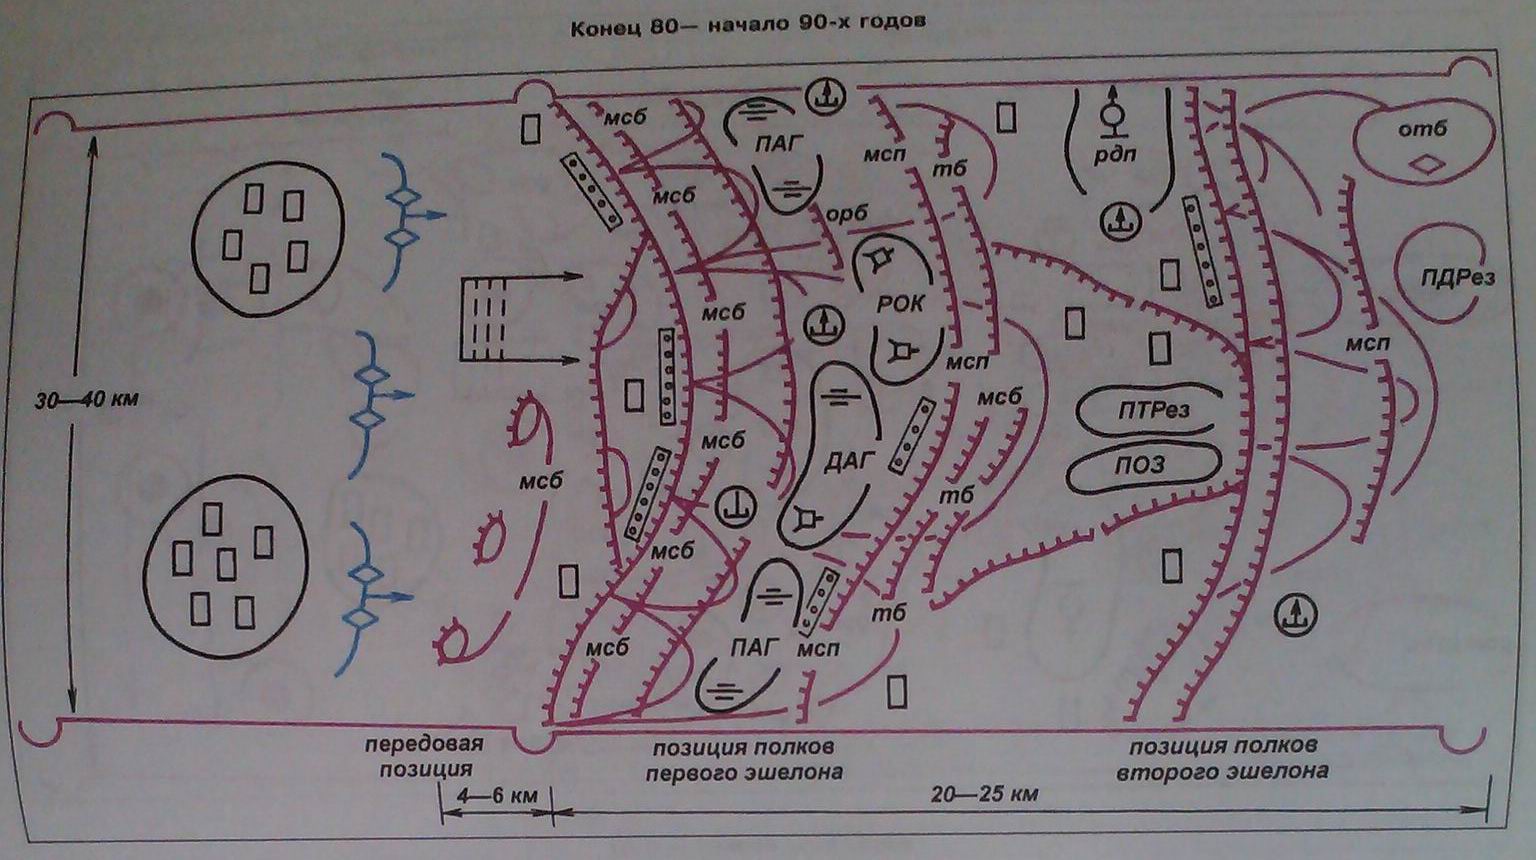 Конец 80— начало 90-х годов
мсб
ПАГ
мсп
тб
рдп
отб
мсб
орб
РОК
ПДРез
мсб
мсп
мсп
30—40 км
мсб
мсб
ПТРез
мсб
ДАГ
ПОЗ
тб
мсб
тб
мсб
ПАГ
мсп
передовая
позиция
позиция полков
первого эшелона
позиция полков
второго эшелона
4—6 км
20—25 км